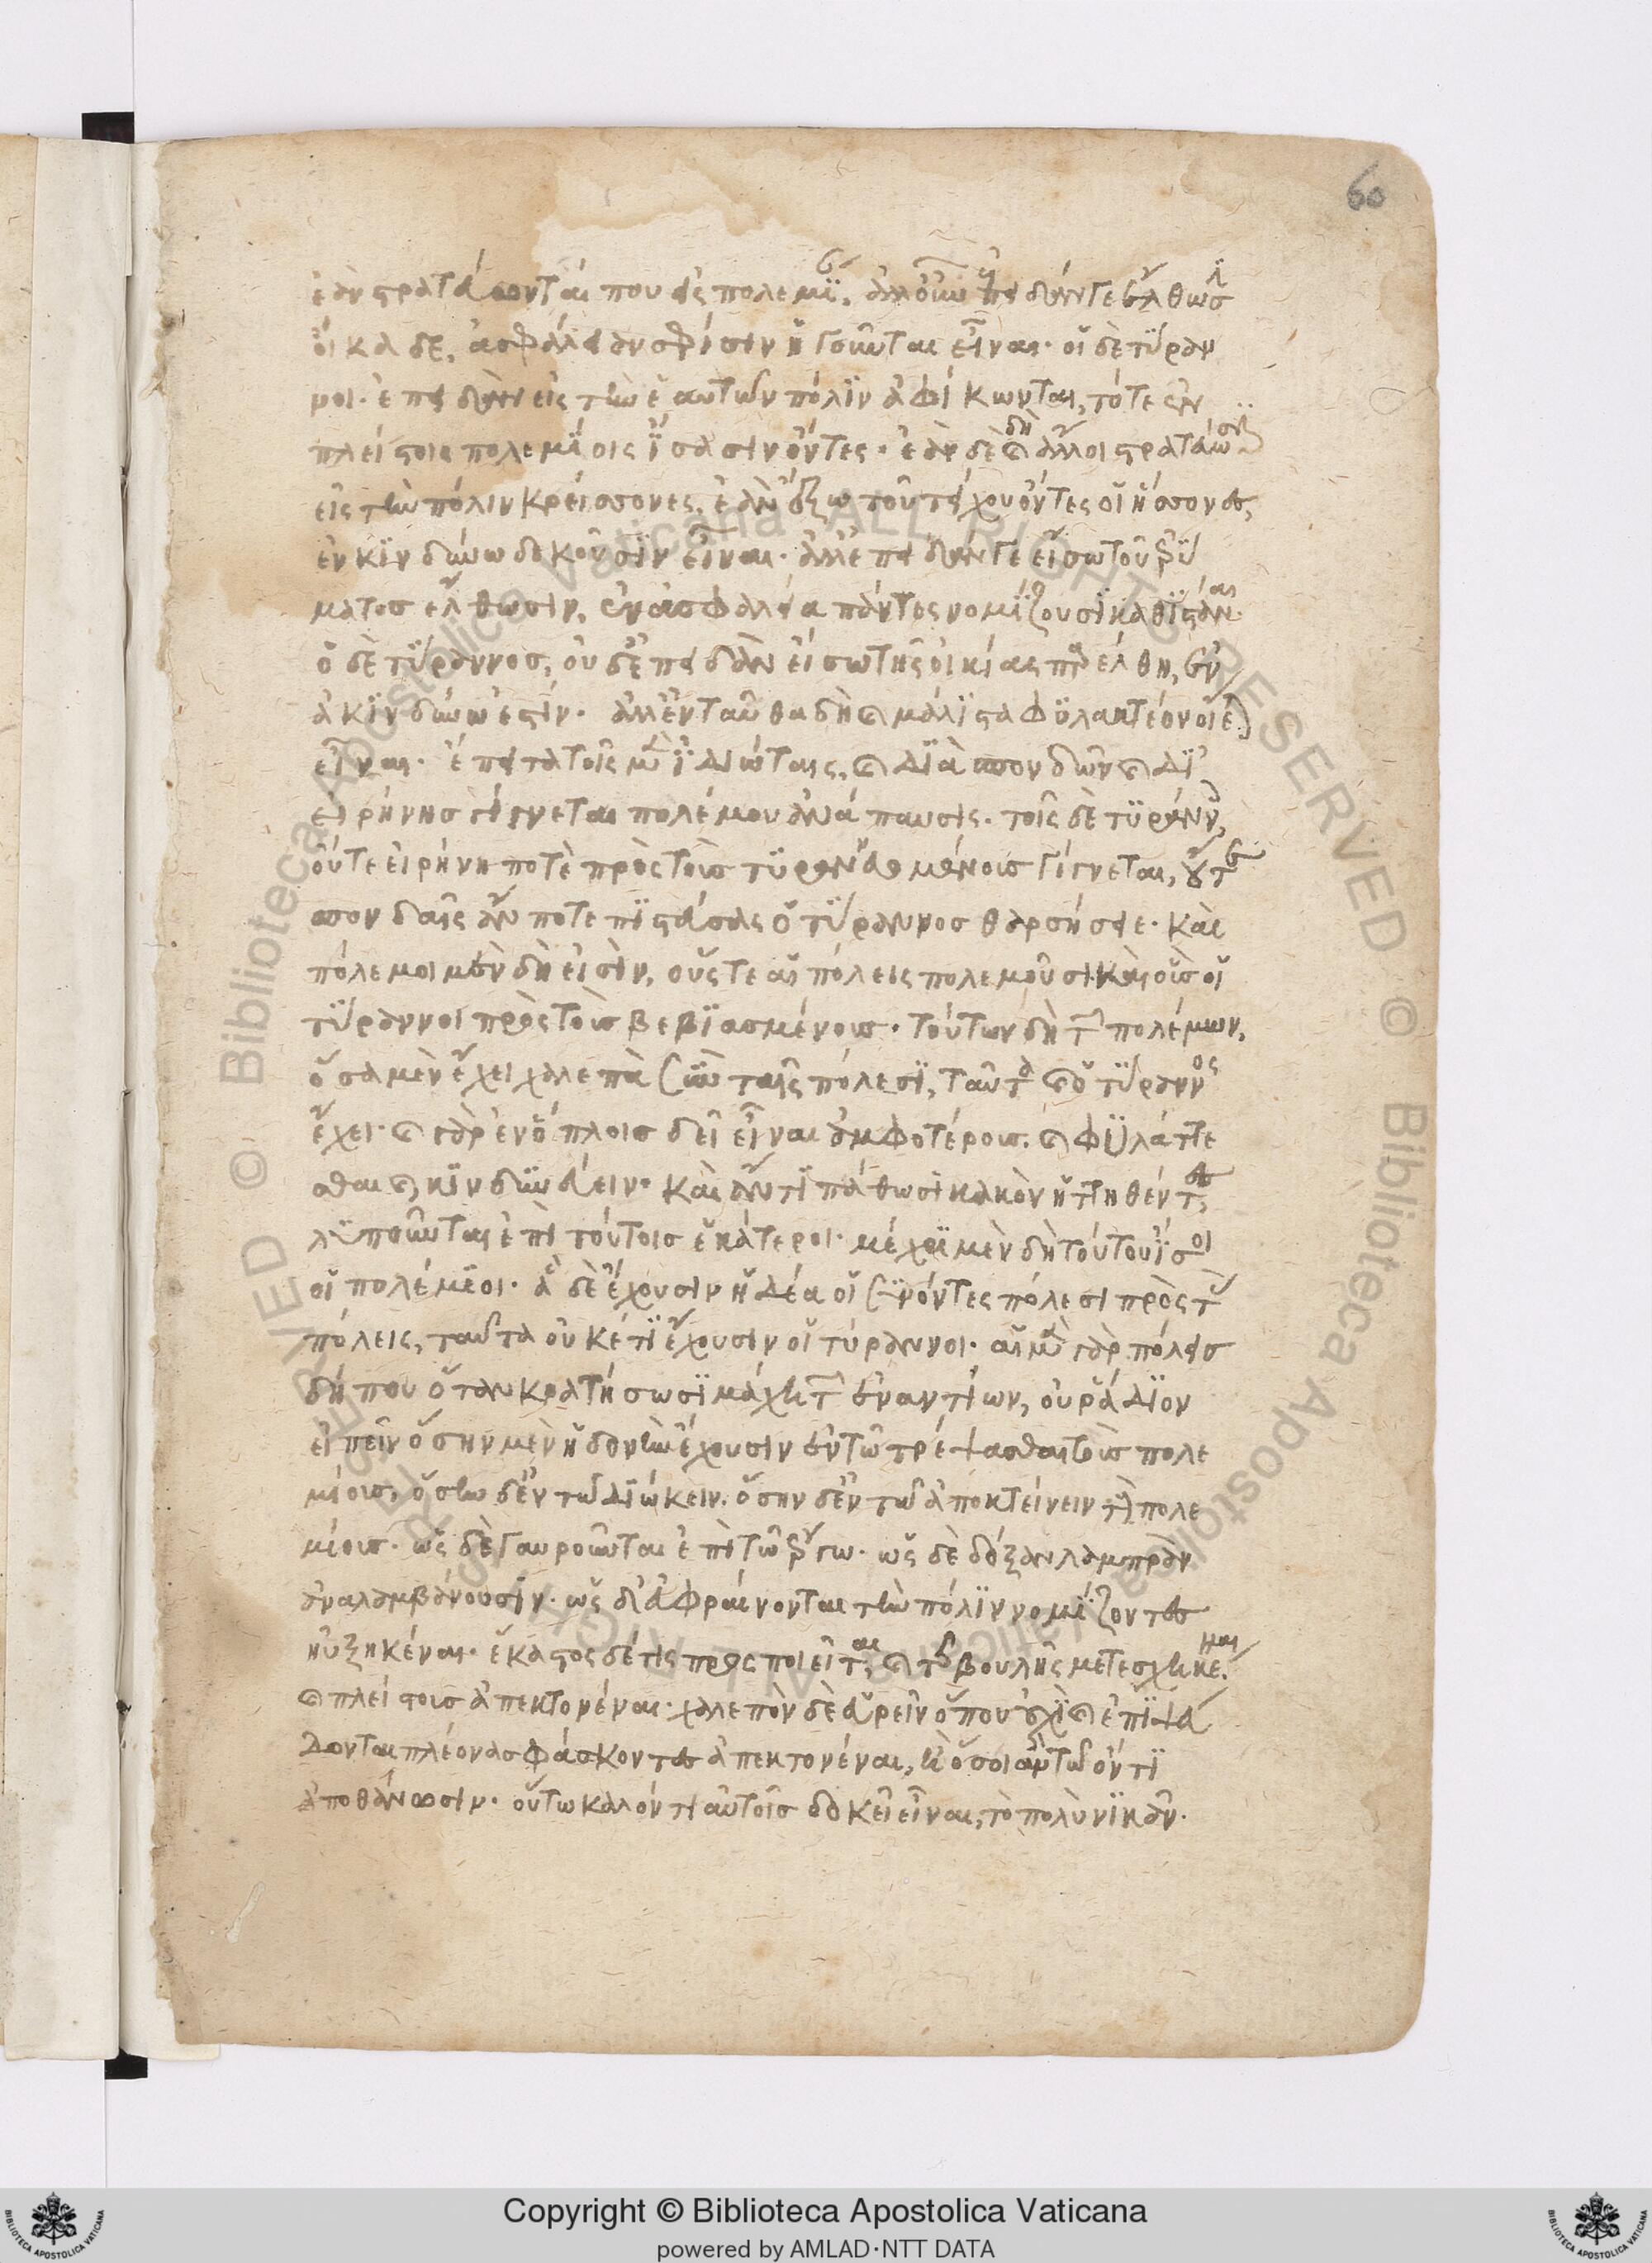 60
ἐὰν στρατεύωνται που εἰς πολεμίαν, ἀλλ' οὖν ἐπειδάν γε ἔλθωσιν
οἴκαδε, ἀσφάλειαν σφίσιν ἡγοῦνται εἶναι· οἱ δὲ τύραν
νοι· ἐπειδὰν εἰς τὴν ἑαυτῶν πόλιν ἀφίκωνται, τότε ἐν
πλείστοις πολεμίοις ἴσασιν ὄντες· ἐὰν δὲ δὴ καὶ ἄλλοι στρατεύωσιν
εἰς τὴν πόλιν κρείσσονες, ἐὰν ἔξω τοῦ τείχους ὄντες οἱ ἥσσονες,
ἐν κινδύνω δοκοῦσιν εἶναι· ἀλλ' ἐπειδάν γε εἴσω τοῦ ἐρύ
ματος ἔλθωσιν, ἐν ἀσφαλεία πάντες νομίζουσι καθιστάναι·
ὁ δὲ τύραννος, οὐδ' ἐπειδὰν εἴσω τῆς οἰκίας παρέλθη, ἐν
ἀκινδύνω ἐστίν· ἀλλ' ἐνταῦθα δὴ καὶ μάλιστα φυλακτέον οἴεται
εἶναι· ἔπειτα τοῖς μὲν ἰδιώταις, καὶ διὰ σπονδῶν καὶ δι'
εἰρήνης γίγνεται πολέμου ἀνάπαυσις· τοῖς δὲ τυράννοις,
οὔτε εἰρήνη ποτὲ πρὸς τοὺς τυραννευομένους γίγνεται, οὔτε
σπονδαῖς ἄν ποτε πιστεύσας ὁ τύραννος θαρσήσειε· καὶ
πόλεμοι μὲν δὴ εἰσὶν, οὕς τε αἱ πόλεις πολεμοῦσι καὶ οὓς οἱ
τύραννοι πρὸς τοὺς βεβιασμένους· τούτων δὴ τῶν πολέμων,
ὅσα μὲν ἔχει χαλεπὰ ὁ σὺν ταῖς πόλεσι, ταῦτα καὶ ὁ τύραννος
ἔχει· καὶ γὰρ ἐν ὅπλοις δεῖ εἶναι ἀμφοτέρους· καὶ φυλάττε
σθαι καὶ κινδυνεύειν· καὶ ἄν τι πάθωσι κακὸν ἡττηθέντες,
λυποῦνται ἐπὶ τούτοις ἑκάτεροι· μέχρι μὲν δὴ τούτου ἴσοι
οἱ πολέμιοι· ἃ δὲ ἔχουσιν ἡδέα οἱ συνόντες πόλεσι πρὸς τὰς
πόλεις, ταῦτα οὐκέτι ἔχουσιν οἱ τύραννοι· αἱ μὲν γὰρ πόλεις
δήπου ὅταν κρατήσωσι μάχη τῶν ἐναντίων, οὐ ῥάδιον
εἰπεῖν ὅσην μὲν ἡδονὴν ἔχουσιν ἐν τῶ τρέψασθαι τοὺς πολε
μίους, ὅσην δ' ἐν τῶ διώκειν· ὅσην δ' ἐν τῶ ἀποκτείνειν τοὺς πολε
μίους· ὡς δὲ γαυροῦνται ἐπὶ τῶ ἔργω· ὡς δὲ δόξαν λαμπρὰν
ἀναλαμβάνουσιν· ὡς δ' εὐφραίνονται τὴν πόλιν νομίζοντες
ηὐξηκέναι· ἕκαστος δέ τις προσποιεῖται καὶ τῆς βουλῆς μετεσχηκέναι
καὶ πλείστους ἀπεκτονέναι· χαλεπὸν δὲ εὑρεῖν ὅπου οὐχὶ καὶ ἐπιψεύ
δονται πλέονας φάσκοντες ἀπεκτονέναι, ἢ ὅσοι ἂν τῶ ὄντι
ἀποθάνωσιν· οὕτω καλόν τι αὐτοῖς δοκεῖ εἶναι, τὸ πολὺ νικᾶν·
Copyright © Biblioteca Apostolica Vaticana
powered by AMLAD·NTT DATA